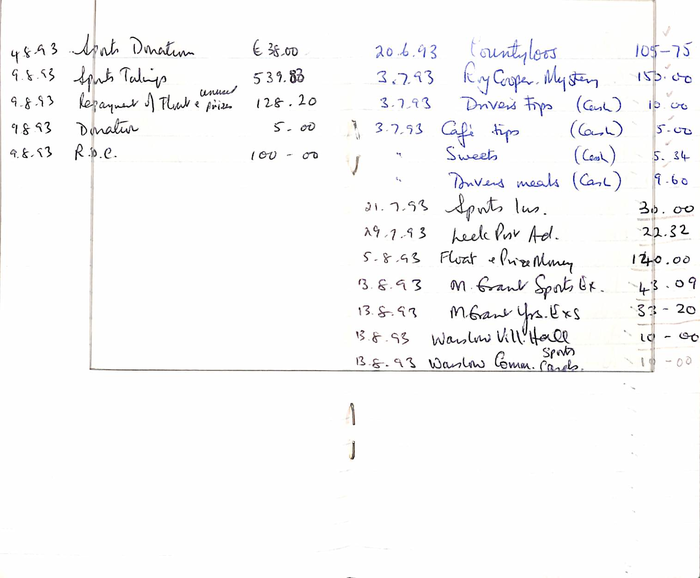 4.8.93 Sports Donation £ 38.00
9.8.93 Sports Takings 539.83
9.8.93 Repayment of Float & unused prizes 128.20
9.8.93 Donation 5.00
9.8.93 R.D.C. 100-00
20.6.93 Countyloos 105-75
3.7.93 Roy Cooper. Mystery 150.00
3.7.93 Drivers tips (Cash) 10.00
3.7.93 Café tips (Cash) 5.00
" Sweets (Cash) 5.34
" Drivers meals (Cash) 9.60
21.7.93 Sports Ins. 30.00
29.7.93 Leek Post Ad. 22.32
5.8.93 Float & Prize Money 140.00
13.8.93 M. Grant Sports Ex. 43.09
13.8.93 M. Grant Yrs. Exs 33-20
13.8.93 Warslow Vill. Hall 10-00
13.8.93 Warslow Comm. Sports Cards. 10-00